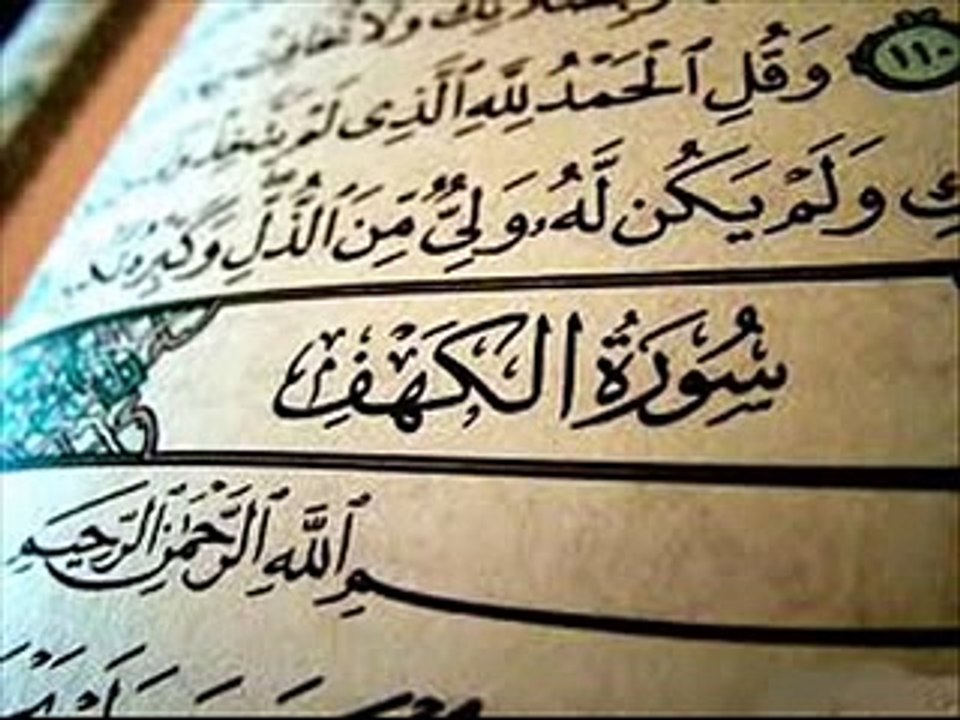 بصلاتك ولا تخافت
١١٠ وَقُلِ ٱلْحَمْدُ لِلَّهِ ٱلَّذِى لَمْ يَتَّخِذْ
وَلَمْ يَكُن لَّهُۥ وَلِىٌّ مِّنَ ٱلذُّلِّ وَكَبِّرْهُ
سُورَةُ الكَهْفِ
ٱللَّهِ ٱلرَّحْمَٰنِ ٱلرَّحِيمِ